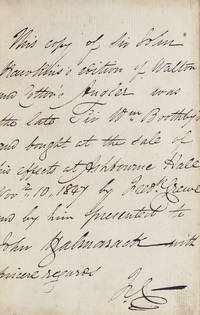 This copy of Sir John
Hawkins's edition of Walton
and Cotton's Angler was
the late Sir Wm Boothby's
and bought at the sale of
his effects at Ashbourne Hall
Novr. 10, 1847 by Fredk. Crewe
and by him presented to
John
with
sincere regards